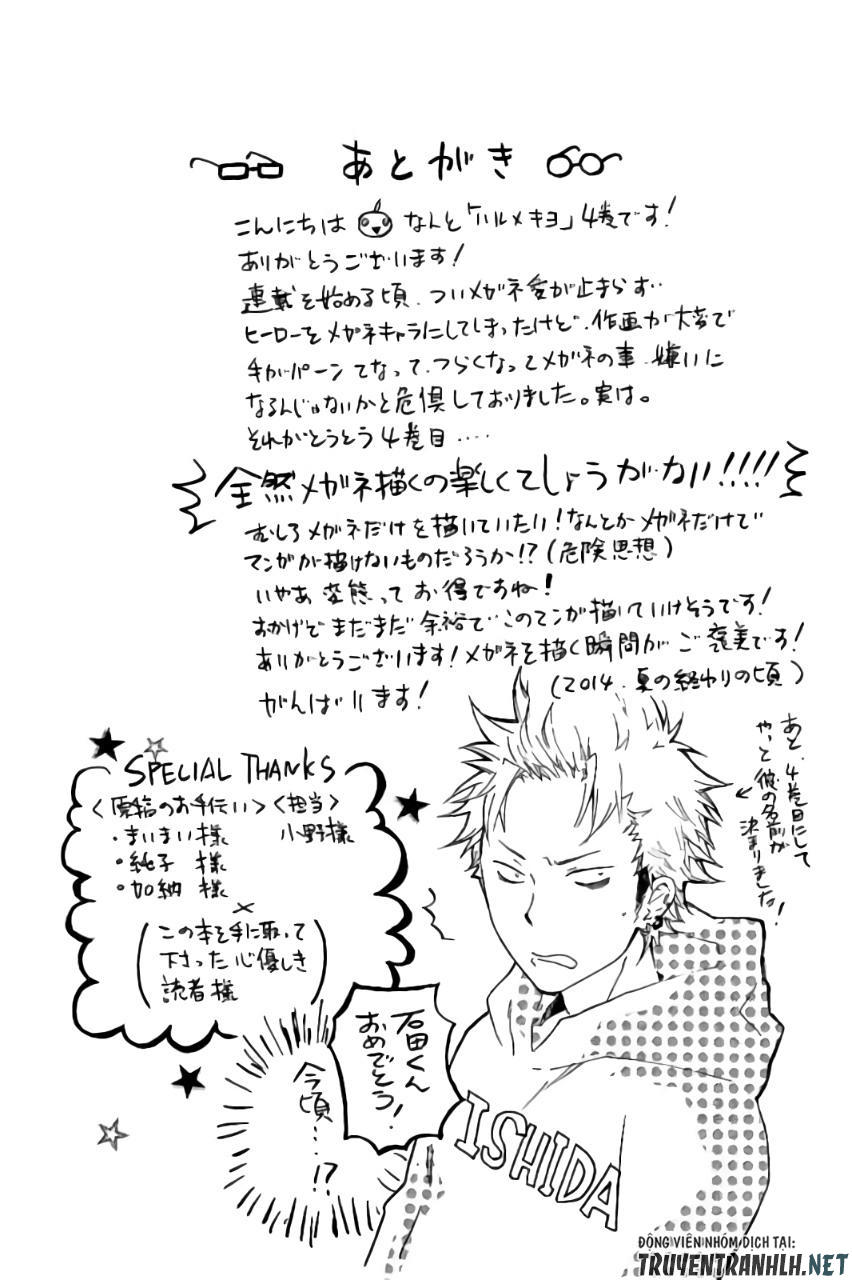 あとがき
こんにちは なんと「ハルメキヨ」4巻です!
ありがとうございます!
連載を始める頃、ついメガネ愛が止まらず…
ヒーローをメガネキャラにしてしまったけど、作画が大変で
手がパーンてなって、つらくなってメガネの事、嫌いに
なるんじゃないかと危惧しておりました。実は。
それがとうとう4巻目‥‥
全然メガネ描くの楽しくてしょうがない!!!!
むしろメガネだけを描いていたい!なんとかメガネだけで
マンガが描けないものだろうか!?(危険思想)
いやあ 変態って お得ですね!
おかげで まだまだ 余裕で このマンガ描いていけそうです!
ありがとうございます!メガネを描く瞬間が ご褒美です!
がんばります!
(2014.夏の終わりの頃)
あと、4巻目にして
やっと彼の名前が
決まりました!
SPECIAL THANKS
<原稿のお手伝い> <担当>
・まいまい様 小野様
・純子 様
・加納 様
×
(この本を手に取って
下さった心優しき
読者様)
石田くん
おめでとう!
今頃…!?
ISHIDA
ĐỘNG VIÊN NHÓM DỊCH TẠI:
TRUYENTRANHLH.NET